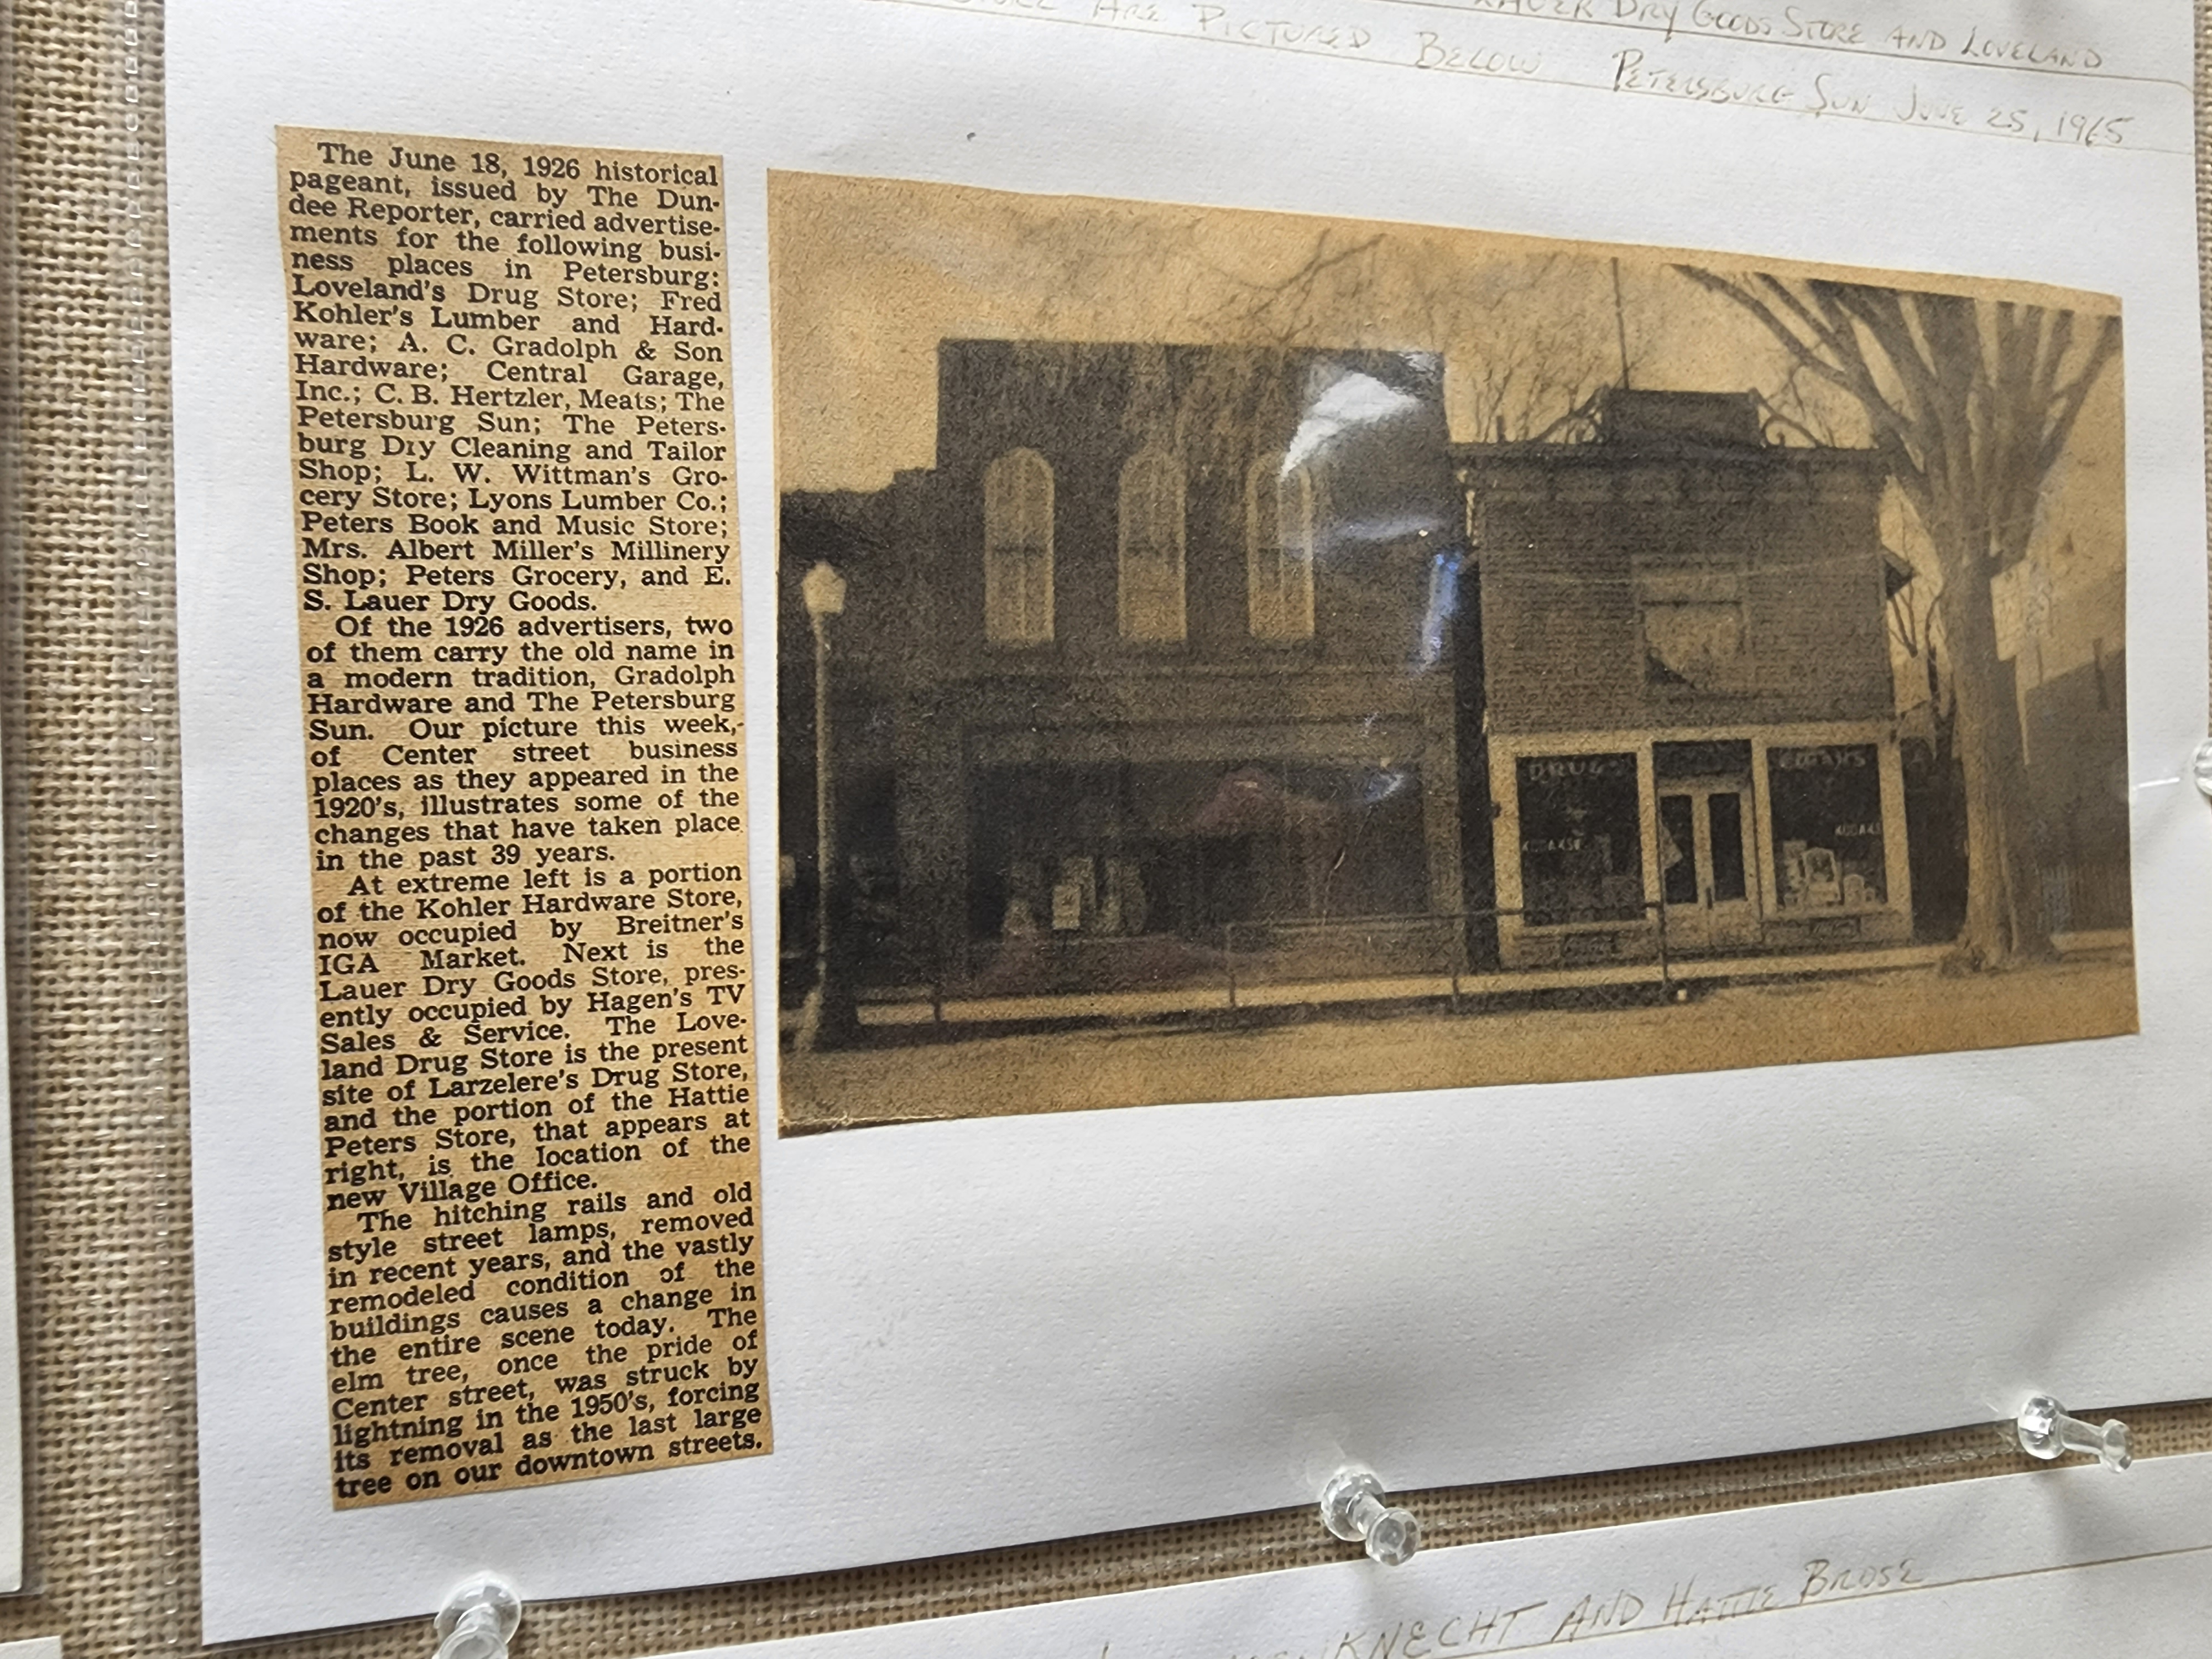 DRY GOODS STORE AND LOVELAND
ARE PICTURED BELOW PETERSBURG SUN JUNE 25, 1965
The June 18, 1926 historical
pageant, issued by The Dun-
dee Reporter, carried advertise-
ments for the following busi-
ness places in Petersburg:
Loveland's Drug Store; Fred
Kohler's Lumber and Hard-
ware; A. C. Gradolph & Son
Hardware; Central Garage,
Inc.; C. B. Hertzler, Meats; The
Petersburg Sun; The Peters-
burg Dry Cleaning and Tailor
Shop; L. W. Wittman's Gro-
cery Store; Lyons Lumber Co.;
Peters Book and Music Store;
Mrs. Albert Miller's Millinery
Shop; Peters Grocery, and E.
S. Lauer Dry Goods.
Of the 1926 advertisers, two
of them carry the old name in
a modern tradition, Gradolph
Hardware and The Petersburg
Sun. Our picture this week,-
of Center street business
places as they appeared in the
1920's, illustrates some of the
changes that have taken place
in the past 39 years.
At extreme left is a portion
of the Kohler Hardware Store,
now occupied by Breitner's
IGA Market. Next is the
Lauer Dry Goods Store, pres-
ently occupied by Hagen's TV
Sales & Service. The Love-
land Drug Store is the present
site of Larzelere's Drug Store,
and the portion of the Hattie
Peters Store, that appears at
right, is the location of the
new Village Office.
The hitching rails and old
style street lamps, removed
in recent years, and the vastly
remodeled condition of the
buildings causes a change in
the entire scene today. The
elm tree, once the pride of
Center street, was struck by
lightning in the 1950's, forcing
its removal as the last large
tree on our downtown streets.
DRUGS
KODAKS
KODAKS
AND HATTIE BROSE